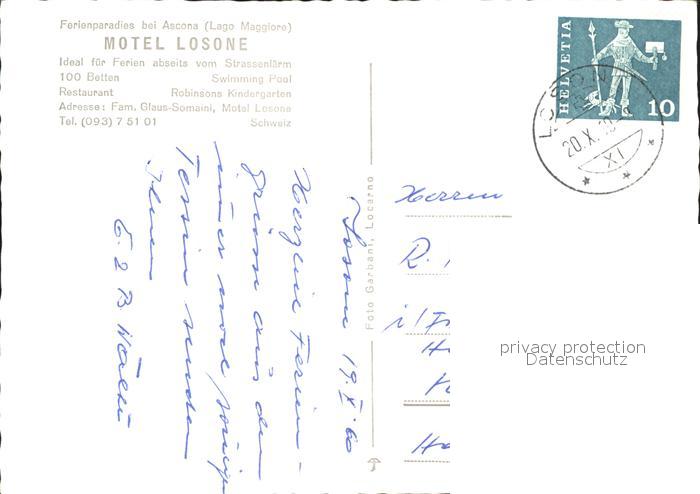 Ferienparadies bei Ascona (Lago Maggiore)
MOTEL LOSONE
Ideal für Ferien abseits vom Strassenlärm
100 Betten Swimming Pool
Restaurant Robinsons Kindergarten
Adresse: Fam. Glaus-Somaini, Motel Losone
Tel. (093) 7 51 01 Schweiz
HELVETIA
10
20.X.
XI
Foto Garbani, Locarno
Losone 19.X.60
Herzliche Ferien-
grüsse aus dem
immer noch
Tessin senden
Ihnen
Herren
R.
privacy protection
Datenschutz